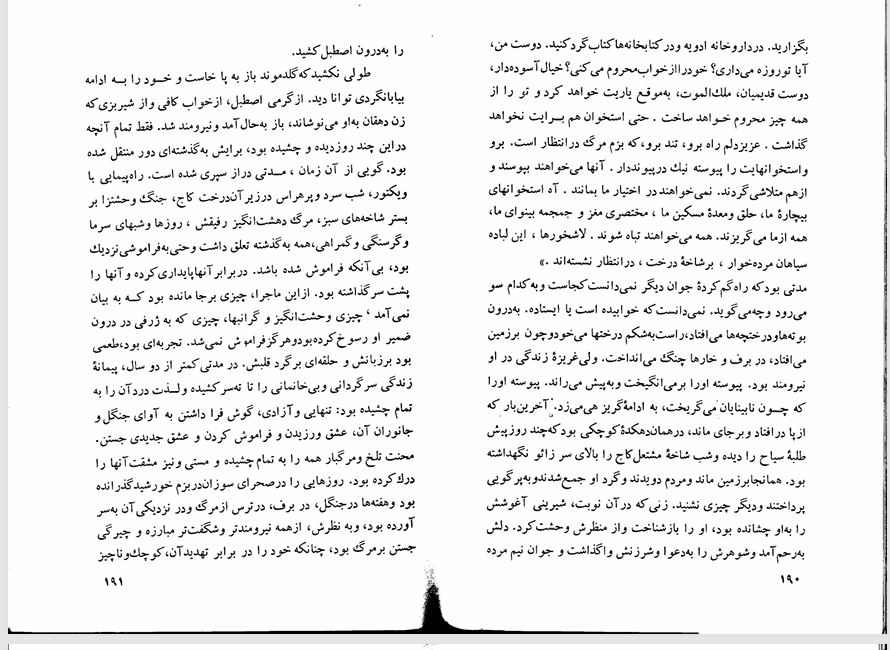 بگزارید. درداروخانه ادویه ودرکتابخانه‌هاکتاب گردکنید. دوست من،
آیا توروزه می‌داری؟ خودراازخواب محروم می‌کنی؟ خیال آسوده‌دار،
دوست قدیمیان، ملك‌الموت، به‌موقع یاریت خواهد کرد و تو را از
همه چیز محروم خواهد ساخت . حتی استخوان هم برایت نخواهد
گذاشت . عزیزدلم راه برو، تند برو، که بزم مرگ درانتظار است. برو
و استخوانهایت را پیوسته نیك درپیونددار . آنها می‌خواهند بپوسند و
ازهم متلاشی گردند. نمی‌خواهند در اختیار ما بمانند . آه استخوانهای
بیچارهٔ ما، حلق ومعدهٔ مسکین ما ، مختصری مغز و جمجمه بینوای ما،
همه ازما می‌گریزند. همه می‌خواهند تباه شوند . لاشخورها ، این لباده
سیاهان مرده‌خوار ، برشاخهٔ درخت ، درانتظار نشسته‌اند .»
مدتی بودکه راه‌گم‌کردهٔ جوان دیگر نمی‌دانست کجاست وبه‌کدام سو
می‌رود وچه‌می‌گوید. نمی‌دانست‌که خوابیده است یا ایستاده. به‌درون
بوته‌هاودرختچه‌ها می‌افتاد، راست‌به‌شکم درختها می‌خودوچون برزمین
می‌افتاد، در برف و خارها چنگ می‌انداخت. ولی‌غریزهٔ زندگی در او
نیرومند بود. پیوسته اورا برمی‌انگیخت وبه‌پیش می‌راند. پیوسته اورا
که چون نابینایان می‌گریخت، به ادامهٔ‌گریز هی‌می‌زد. آخرین‌بار که
ازپا درافتاد وبرجای ماند، درهمان‌دهکدهٔ کوچکی بودکه‌چند روزپیش
طلبهٔ سیاح را دیده وشب شاخهٔ مشتعل‌کاج را بالای سر زائو نگهداشته
بود. همانجابرزمین ماند ومردم دویدند وگرد او جمع‌شدندوبه‌پرگویی
پرداختند ودیگر چیزی نشنید. زنی‌که درآن نوبت، شیرینی آغوشش
را به‌او چشانده بود، او را بازشناخت واز منظرش وحشت‌کرد. دلش
به‌رحم‌آمد وشوهرش را به‌دعوا وشرزنش واگذاشت و جوان نیم مرده
۱۹۰
را به‌درون اصطبل‌کشید.
طولی نکشیدکه‌گلدموند باز به پا خاست و خود را به ادامه
بیابانگردی توانا دید. ازگرمی اصطبل، ازخواب کافی و از شیربزی‌که
زن دهقان به‌او می‌نوشاند، باز به‌حال‌آمد ونیرومند شد. فقط تمام آنچه
دراین چند روزدیده و چشیده بود، برایش به‌گذشته‌ای دور منتقل شده
بود. گویی از آن زمان ، مدتی دراز سپری شده است. راه‌پیمایی با
ویکتور، شب سرد وپرهراس درزیرآن‌درخت کاج، جنگ وحشتزا بر
بستر شاخه‌های سبز، مرگ دهشت‌انگیز رفیقش ، روزها وشبهای سرما
وگرسنگی وگمراهی، همه به‌گذشته تعلق داشت وحتی‌به‌فراموشی‌نزدیك
بود، بی‌آنکه فراموش شده باشد. دربرابرآنهاپایداری‌کرده وآنها را
پشت سرگذاشته بود. ازاین ماجرا، چیزی برجا مانده بود که به بیان
نمی‌آمد ، چیزی وحشت‌انگیز و گرانبها، چیزی که به ژرفی در درون
ضمیر او رسوخ‌کرده‌بودوهرگزفراموش نمی‌شد. تجربه‌ای بود،طعمی
بود برزبانش و حلقه‌ای برگرد قلبش. در مدتی‌کمتر از دو سال، پیمانهٔ
زندگی سرگردانی وبی‌خانمانی را تا ته‌سرکشیده ولذت دردآن را به
تمام چشیده بود: تنهایی وآزادی، گوش فرا داشتن به آوای جنگل و
جانوران آن، عشق ورزیدن و فراموش کردن و عشق جدیدی جستن.
محنت تلخ ومرگبار همه را به تمام‌چشیده و مستی ونیز مشقت‌آنها را
درك‌کرده بود. روزهایی را درصحرای سوزان‌دربزم خورشیدگذرانده
بود وهفته‌ها درجنگل، در برف، درترس ازمرگ ودر نزدیکی‌آن به‌سر
آورده بود، وبه نظرش، ازهمه نیرومندتر وشگفت‌تر مبارزه و چیرگی
جستن برمرگ بود، چنانکه خود را در برابر تهدیدآن،کوچك‌وناچیز
۱۹۱